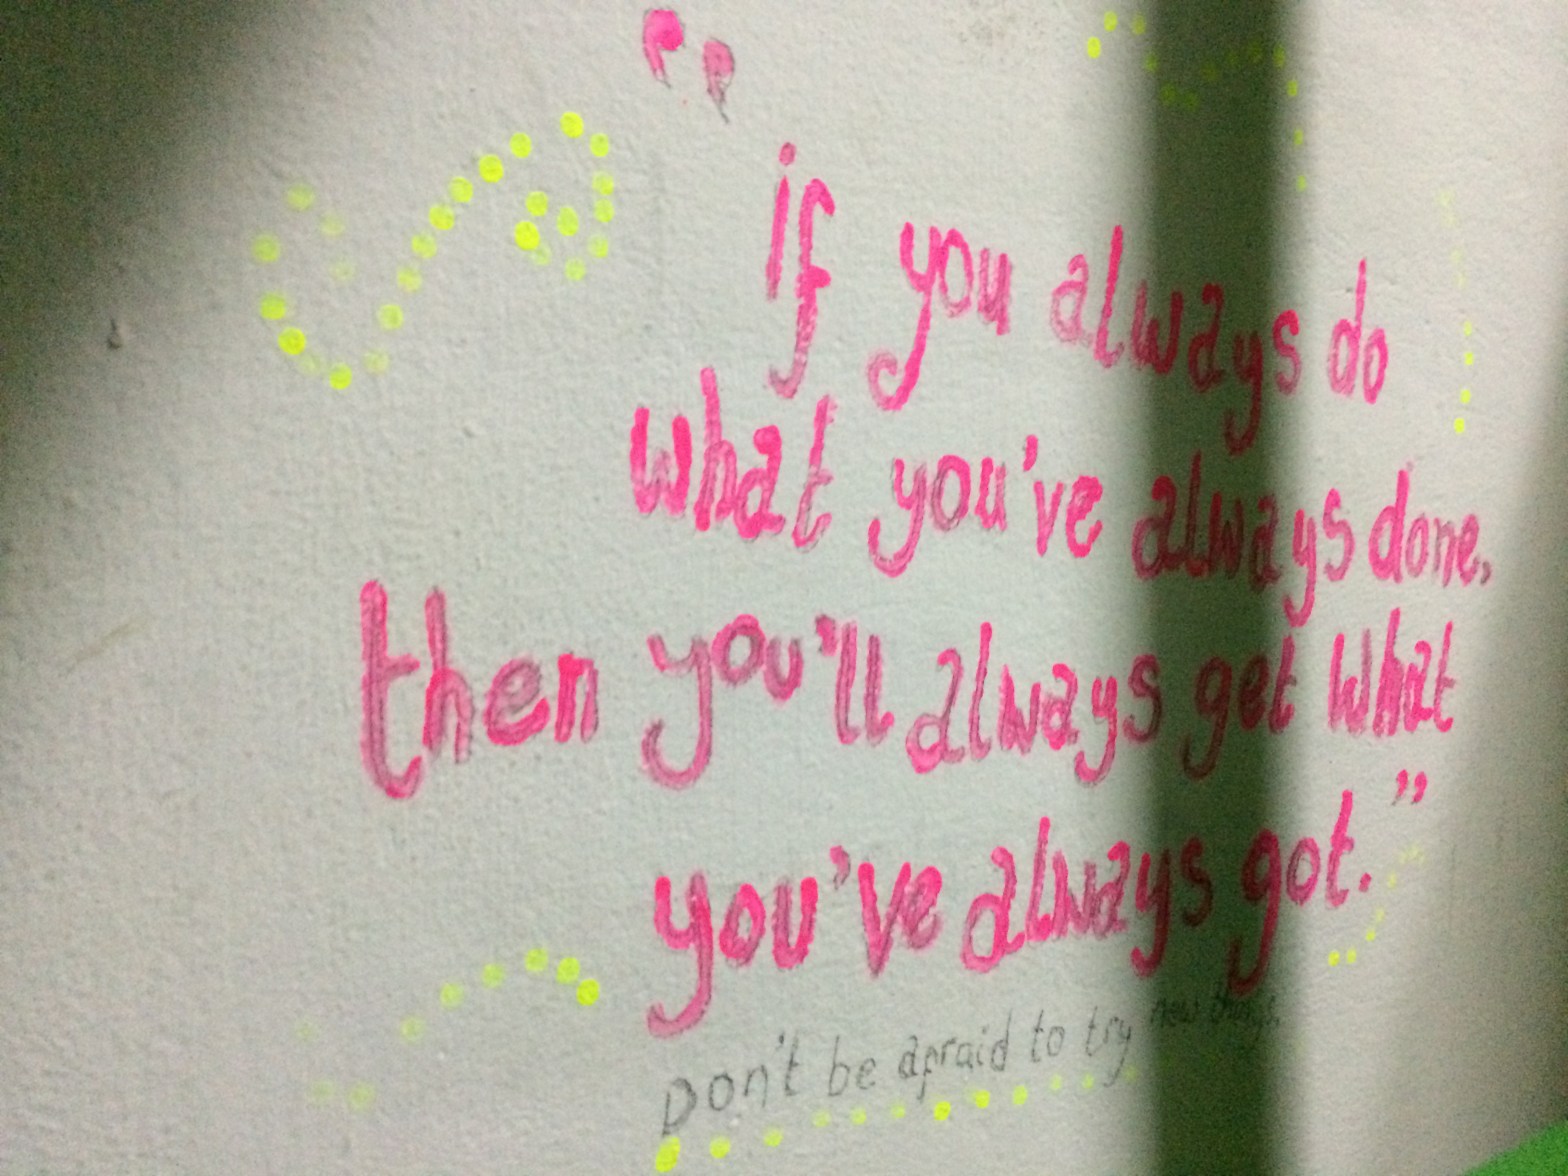 "if you always do
what you've always done,
then you'll always get what
you've always got."
Don't be afraid to try new things